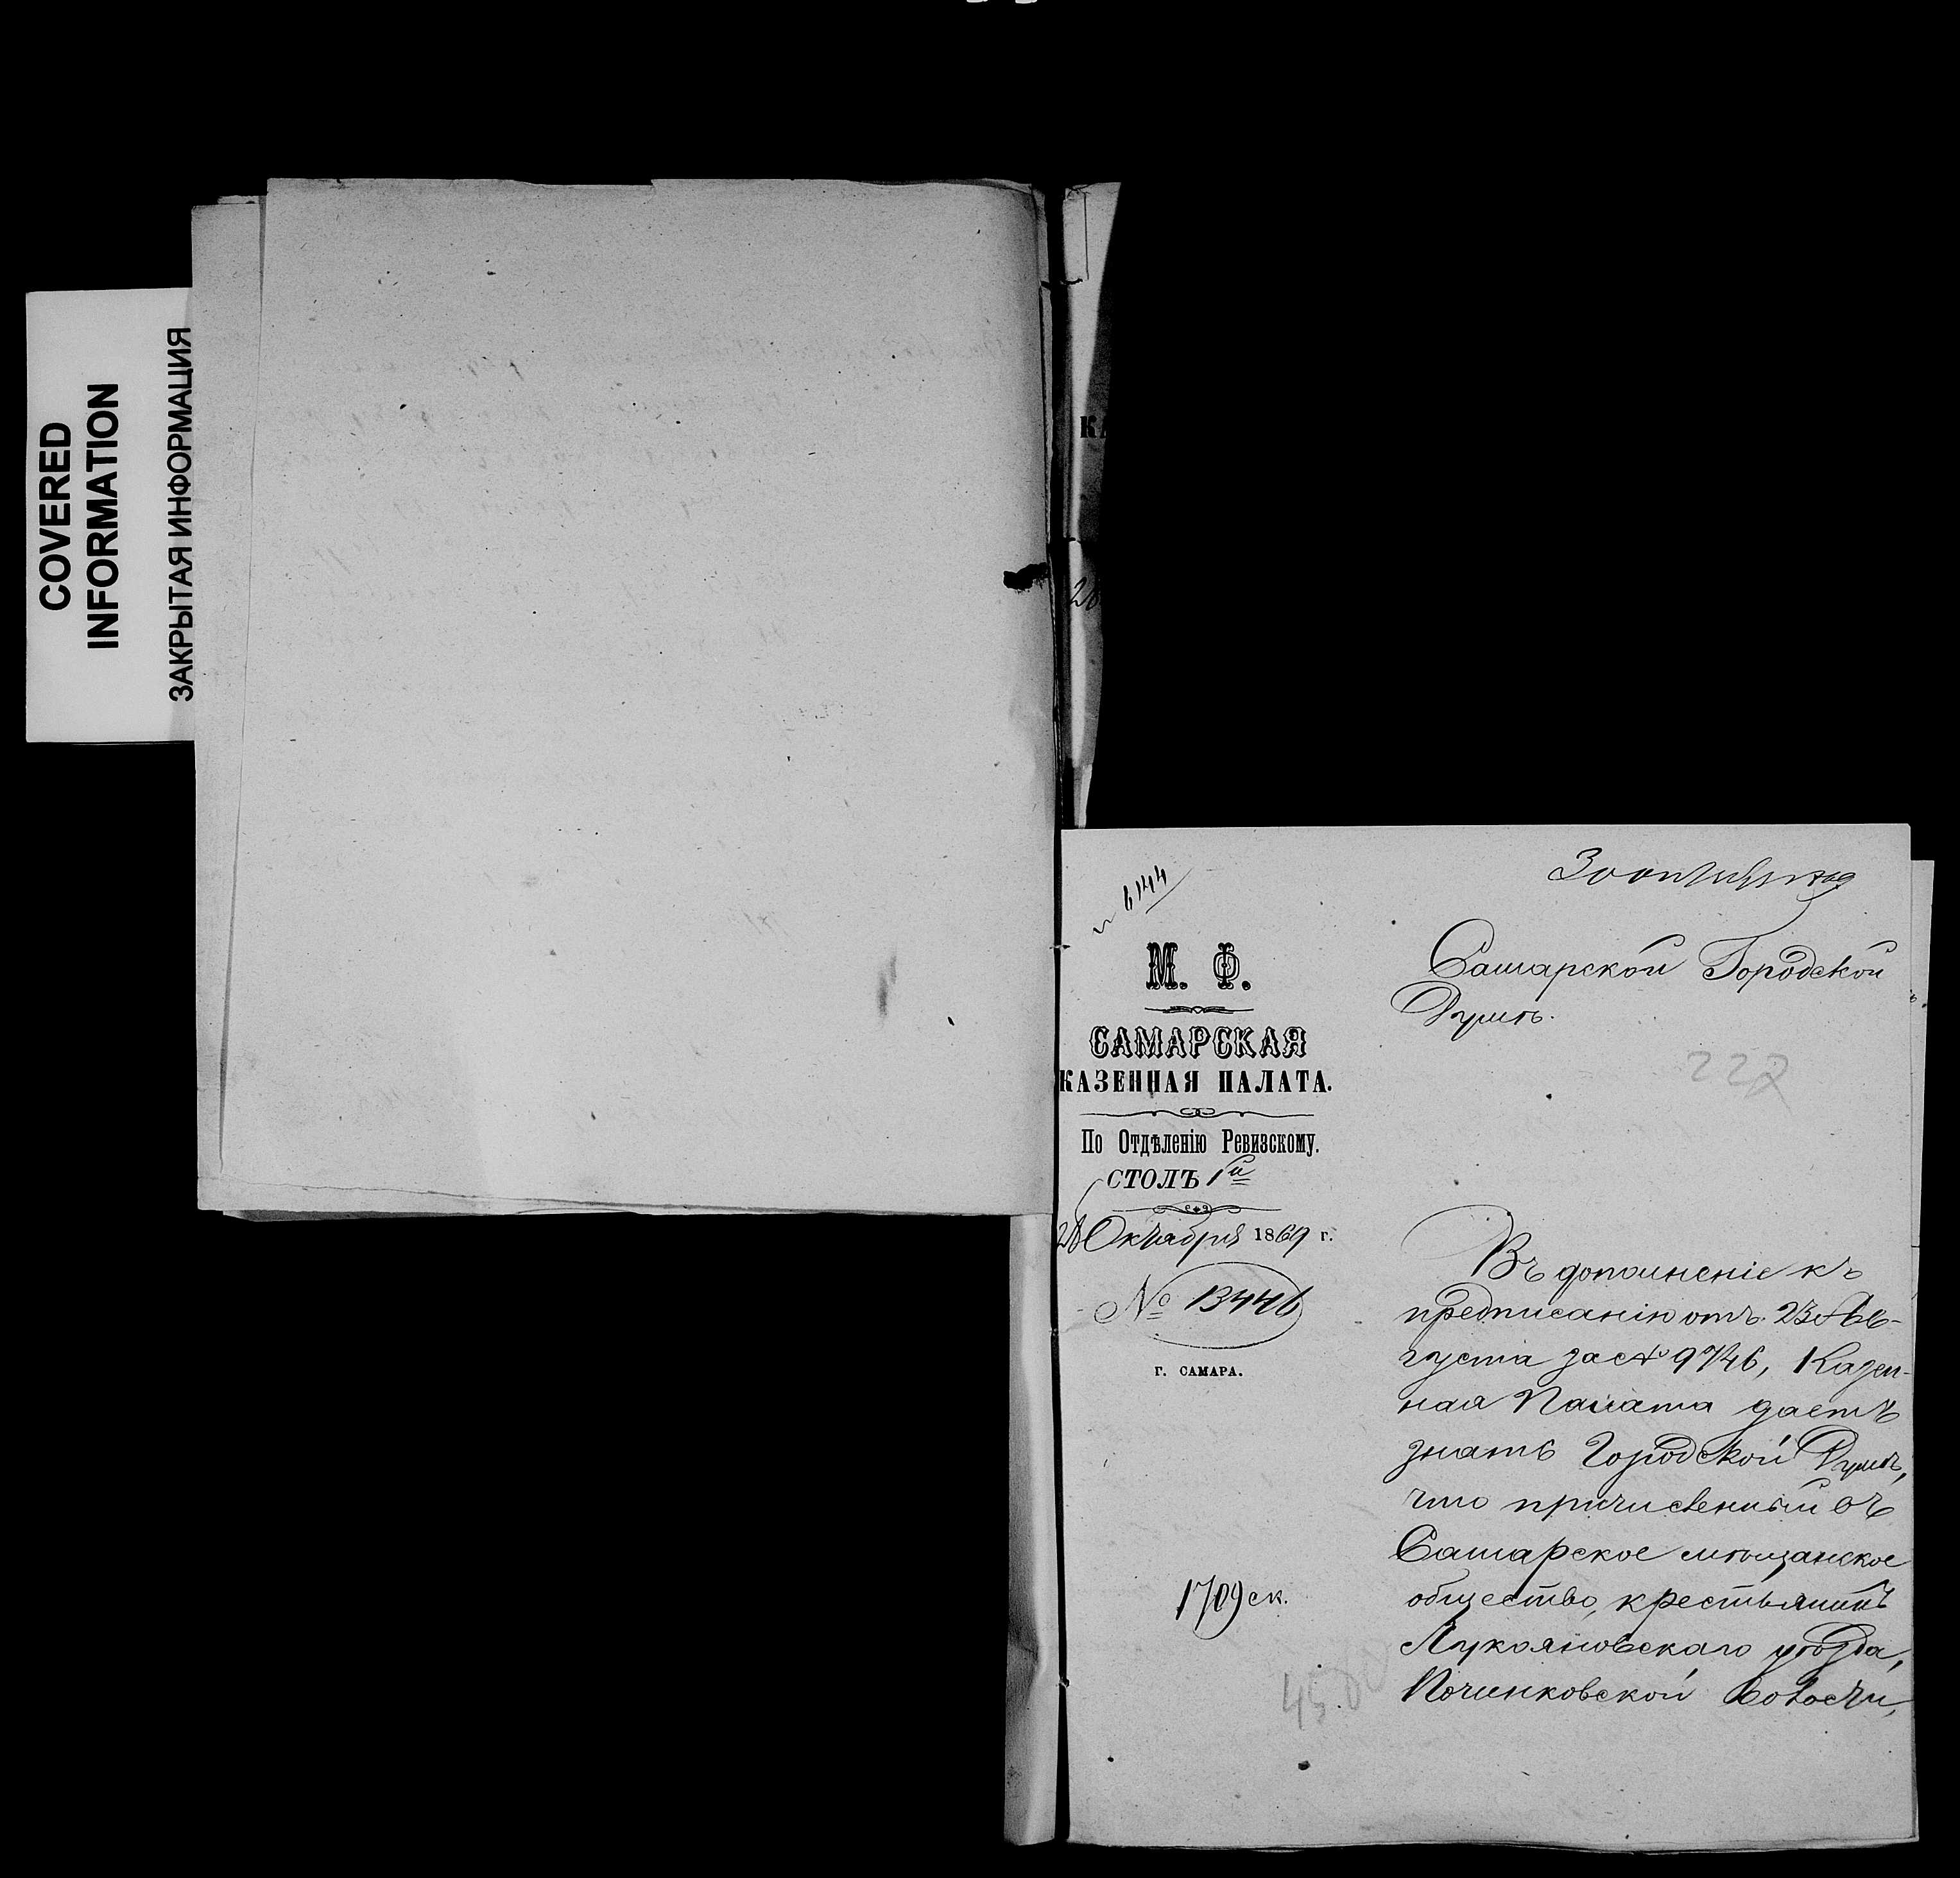 COVERED
INFORMATION
ЗАКРЫТАЯ ИНФОРМАЦИЯ
КА
28
6144
30 октября 1869
М. Ф.
САМАРСКАЯ
КАЗЕННАЯ ПАЛАТА.
По Отдѣленію Ревизскому.
СТОЛЪ 1й
28 Октября 1869 г.
№ 13446
Г. САМАРА.
1709 ск.
Самарской Городской
Думѣ.
227
Въ дополненіе къ
предписанію отъ 23 Ав-
густа за № 9746, Казен-
ная Палата даетъ
знать Городской Думѣ,
что причисленный въ
Самарское мѣщанское
общество, крестьянинъ
Лукояновскаго уѣзда,
Починковской волости,